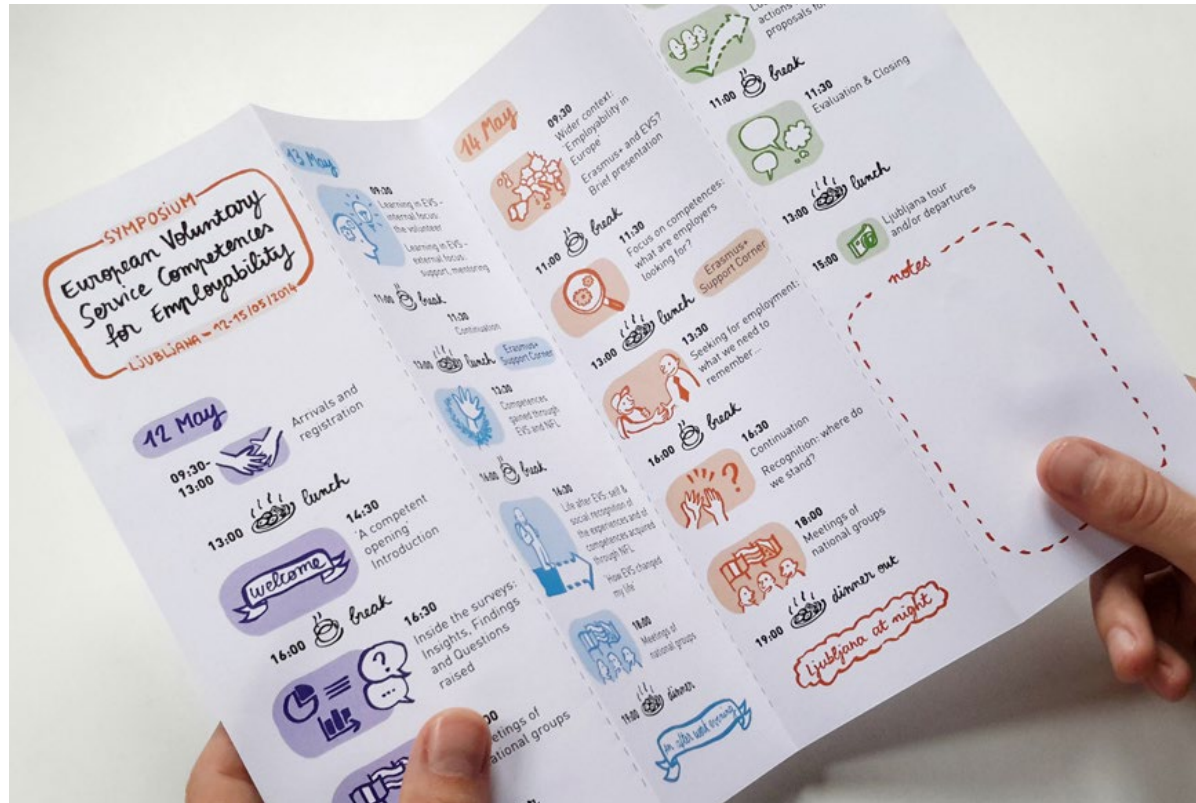 SYMPOSIUM
European Voluntary
Service Competences
for Employability
LJUBLJANA - 12-15/05/2014
12 May
09:30-
13:00
Arrivals and
registration
13:00 lunch
14:30
'A competent
opening'
Introduction
welcome
16:00 break
16:30
Inside the surveys:
Insights, Findings
and Questions
raised
13 May
09:30
Learning in EVS -
internal focus:
the volunteer
Learning in EVS -
external focus:
support, mentoring
11:00 break
11:30
Continuation
13:00 lunch
Erasmus+
Support Corner
13:30
Competences
gained through
EVS and NFL
16:00 break
16:30
Life after EVS: self &
social recognition of
the experiences and of
competences acquired
through NFL
'How EVS changed
my life'
18:00
Meetings of
national groups
19:00 dinner
14 May
09:30
Wider context:
'Employability in
Europe'
Erasmus+ and EVS?
Brief presentation
11:00 break
11:30
Focus on competences:
what are employers
looking for?
13:00 lunch
Erasmus+
Support Corner
13:30
Seeking for employment:
what we need to
remember...
16:00 break
16:30
Continuation
Recognition: where do
we stand?
?
18:00
Meetings of
national groups
19:00 dinner out
Ljubljana at night
actions
proposals
11:00 break
11:30
Evaluation & Closing
13:00 lunch
15:00
Ljubljana tour
and/or departures
notes